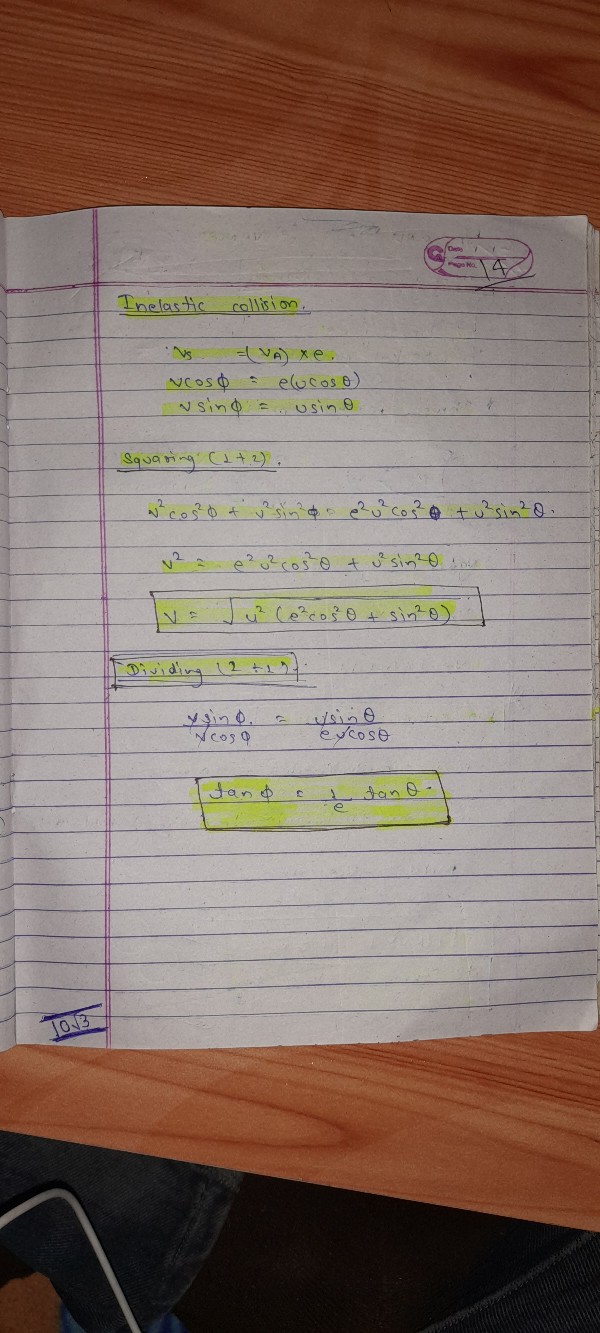 Date / /
Page No. 14
Inelastic collision.
Vs = (VA) × e.
vcosϕ = e(ucosθ)
vsinϕ = usinθ
Squaring (1+2).
v²cos²ϕ + v²sin²ϕ = e²u²cos²θ + u²sin²θ.
v² = e²u²cos²θ + u²sin²θ
V = √u² (e²cos²θ + sin²θ)
Dividing (2 ÷ 1).
vsinϕ / vcosϕ = usinθ / eucosθ
tanϕ = 1/e tanθ.
10√3